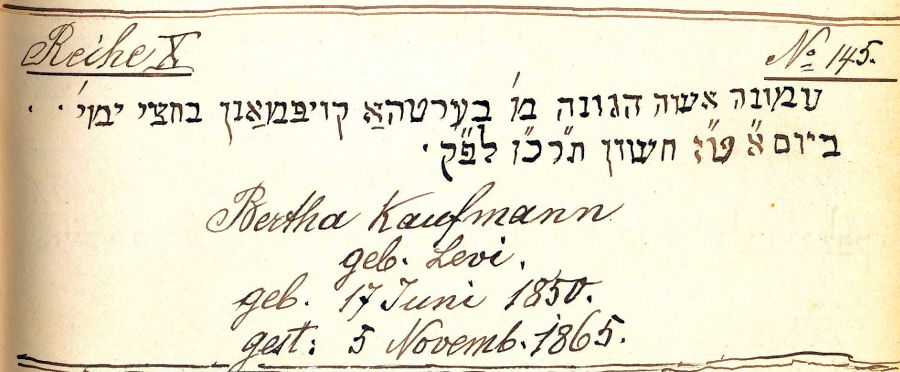 Reihe X
No 145.
טמונה אשה הגונה מ' בערטהאַ קויפּמאַנן בחצי ימי' . .
ביום א' ט"ז חשון תרכ"ו לפ"ק.
Bertha Kaufmann
geb. Levi.
geb. 17 Juni 1850.
gest: 5 Novemb. 1865.